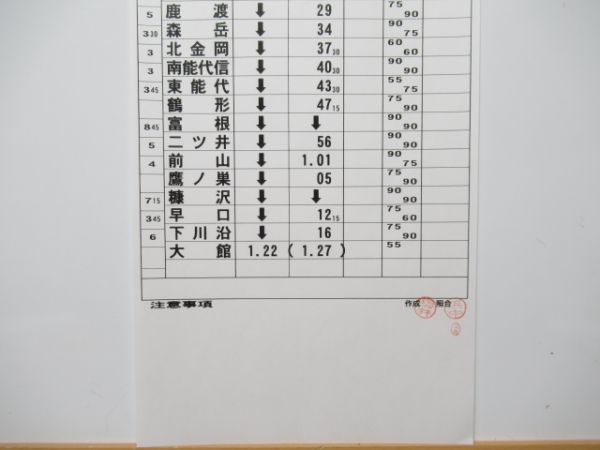 5 鹿渡 ⬇ 29 75 90
3 30 森岳 ⬇ 34 90 75
3 北金岡 ⬇ 37 30 60 60
3 南能代信 ⬇ 40 30 90 90
3 45 東能代 ⬇ 43 30 55 75
鶴形 ⬇ 47 15 75 90
8 45 富根 ⬇ ⬇ 90 90
5 二ツ井 ⬇ 56 90 90
4 前山 ⬇ 1.01 90 75
鷹ノ巣 ⬇ 05 75 90
7 15 糠沢 ⬇ ⬇ 90 90
3 45 早口 ⬇ 12 15 75 60
6 下川沿 ⬇ 16 75 90
大館 1.22 ( 1.27 ) 55
注意事項 作成 照合